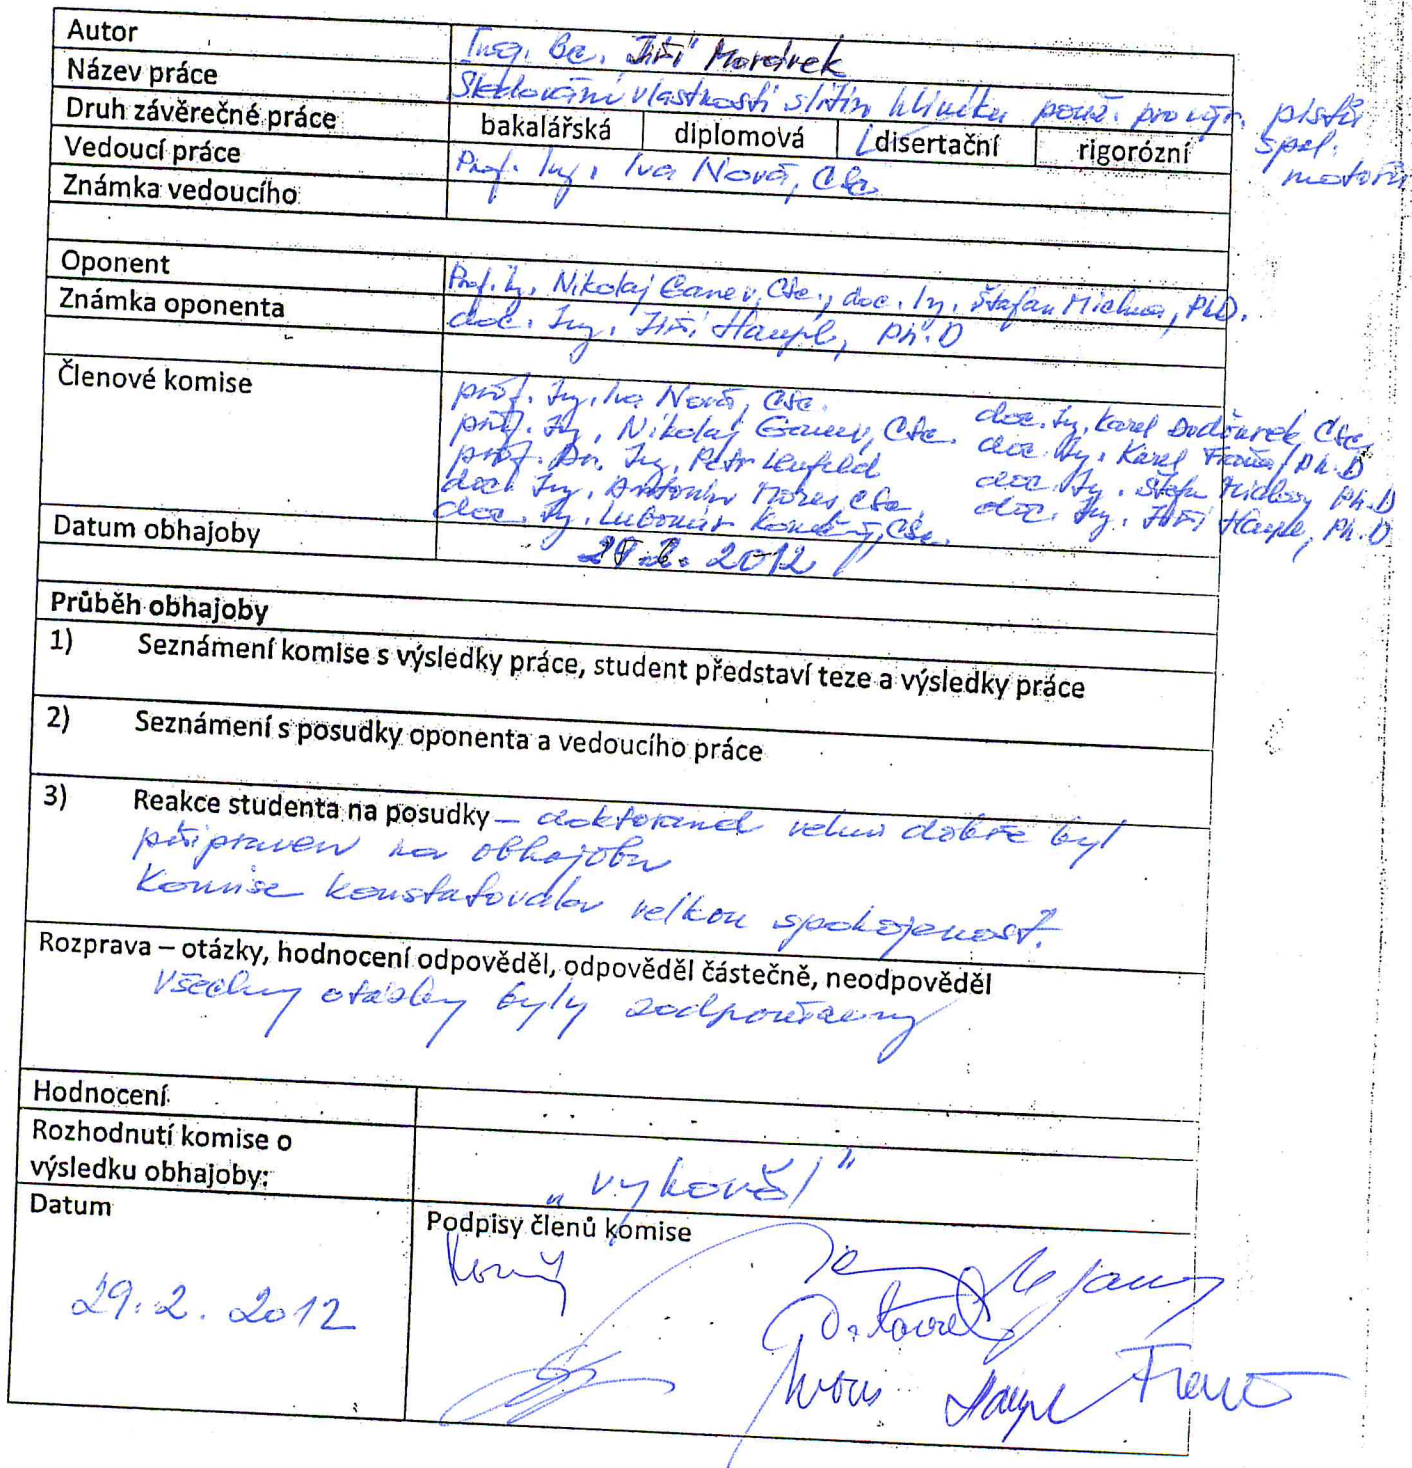 Autor Ing. Bc. Jiří Morávek
Název práce Sledování vlastností slitin hliníku použ. pro výr. pístů spal. motorů
Druh závěrečné práce bakalářská diplomová disertační rigorózní
Vedoucí práce Prof. Ing. Iva Nová, CSc.
Známka vedoucího
Oponent Prof. Ing. Nikolaj Ganev, CSc., doc. Ing. Štefan Michna, PhD.
Známka oponenta doc. Ing. Jiří Haupl, Ph.D
Členové komise
prof. Ing. Iva Nová, CSc. doc. Ing. Karel Daďourek, CSc.
prof. Ing. Nikolaj Ganev, CSc. doc. Ing. Karel Fraňa, Ph.D
prof. Dr. Ing. Petr Lenfeld doc. Ing. Štefan Michna, Ph.D
doc. Ing. Antonín Mores, CSc. doc. Ing. Jiří Haupl, Ph.D
doc. Ing. Lubomír CSc.
Datum obhajoby 29. 2. 2012
Průběh obhajoby
1) Seznámení komise s výsledky práce, student představí teze a výsledky práce
2) Seznámení s posudky oponenta a vedoucího práce
3) Reakce studenta na posudky – doktorand velmi dobře byl
připraven na obhajobu
Komise konstatovala velkou spokojenost.
Rozprava – otázky, hodnocení odpověděl, odpověděl částečně, neodpověděl
Všechny otázky byly zodpovězeny
Hodnocení
Rozhodnutí komise o
výsledku obhajoby: „vykonal"
Datum Podpisy členů komise
29. 2. 2012